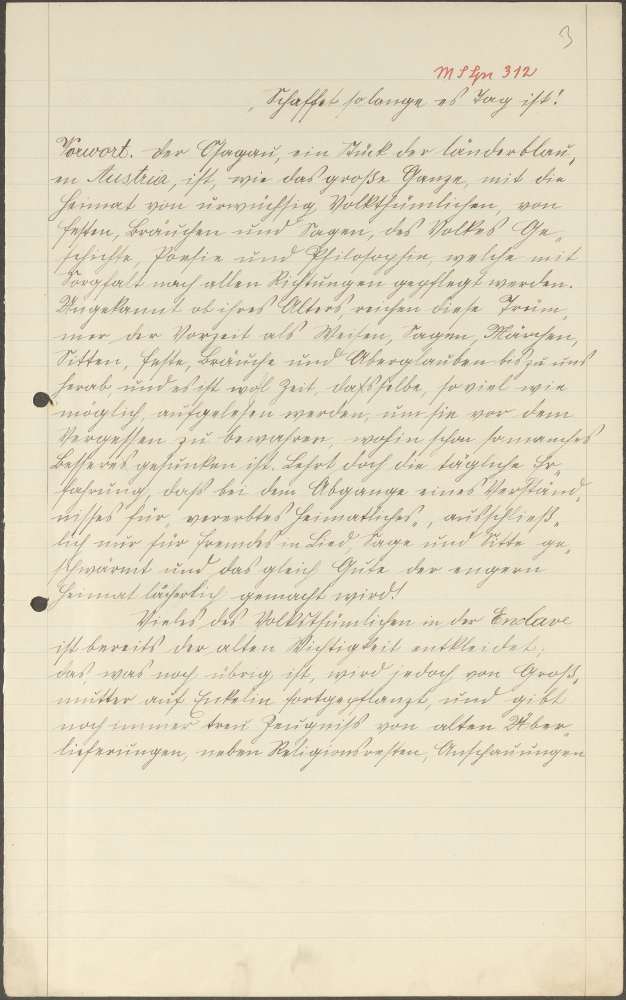 3
MS Lpr 312
Schaffet so lange es Tag ist!
Vorwort. Der Chagau, ein Stück der länderblau„
en Austria, ist, wie das große Ganze, mit die
Heimat von urwüchsig Volksthümlichen, von
Festen, Bräuchen und Sagen, des Volkes Ge„
schichte, Poesie und Philosophie, welche mit
Sorgfalt nach allen Richtungen gepflegt werden.
Ungekannt ob ihres Alters reichen diese Trüm„
mer der Vorzeit als Weisen, Sagen, Märchen,
Sitten, Feste, Bräuche und Aberglauben bis zu uns
herab, und es ist wol Zeit, dass selbe, so viel wie
möglich, aufgelesen werden, um sie vor dem
Vergessen zu bewahren, wohin schon so manches
Besseres gesunken ist. Lehrt doch die tägliche Er„
fahrung, daß bei dem Abgange eines Verständ„
nisses für „vererbtes Heimatliches“, ausschließ„
lich nur für Fremdes in Lied, Sage und Sitte ge„
schwärmt und das gleich Gute der engern
Heimat lächerlich gemacht wird!
Vieles des Volksthümlichen in der Enclave
ist bereits der alten Wichtigkeit entkleidet;
das, was noch übrig ist, wird jedoch von Groß„
mutter auf Enkelin fortgepflanzt, und gibt
noch immer treu Zeugniss von alten Über„
lieferungen, neben Religionsresten, Anschauungen